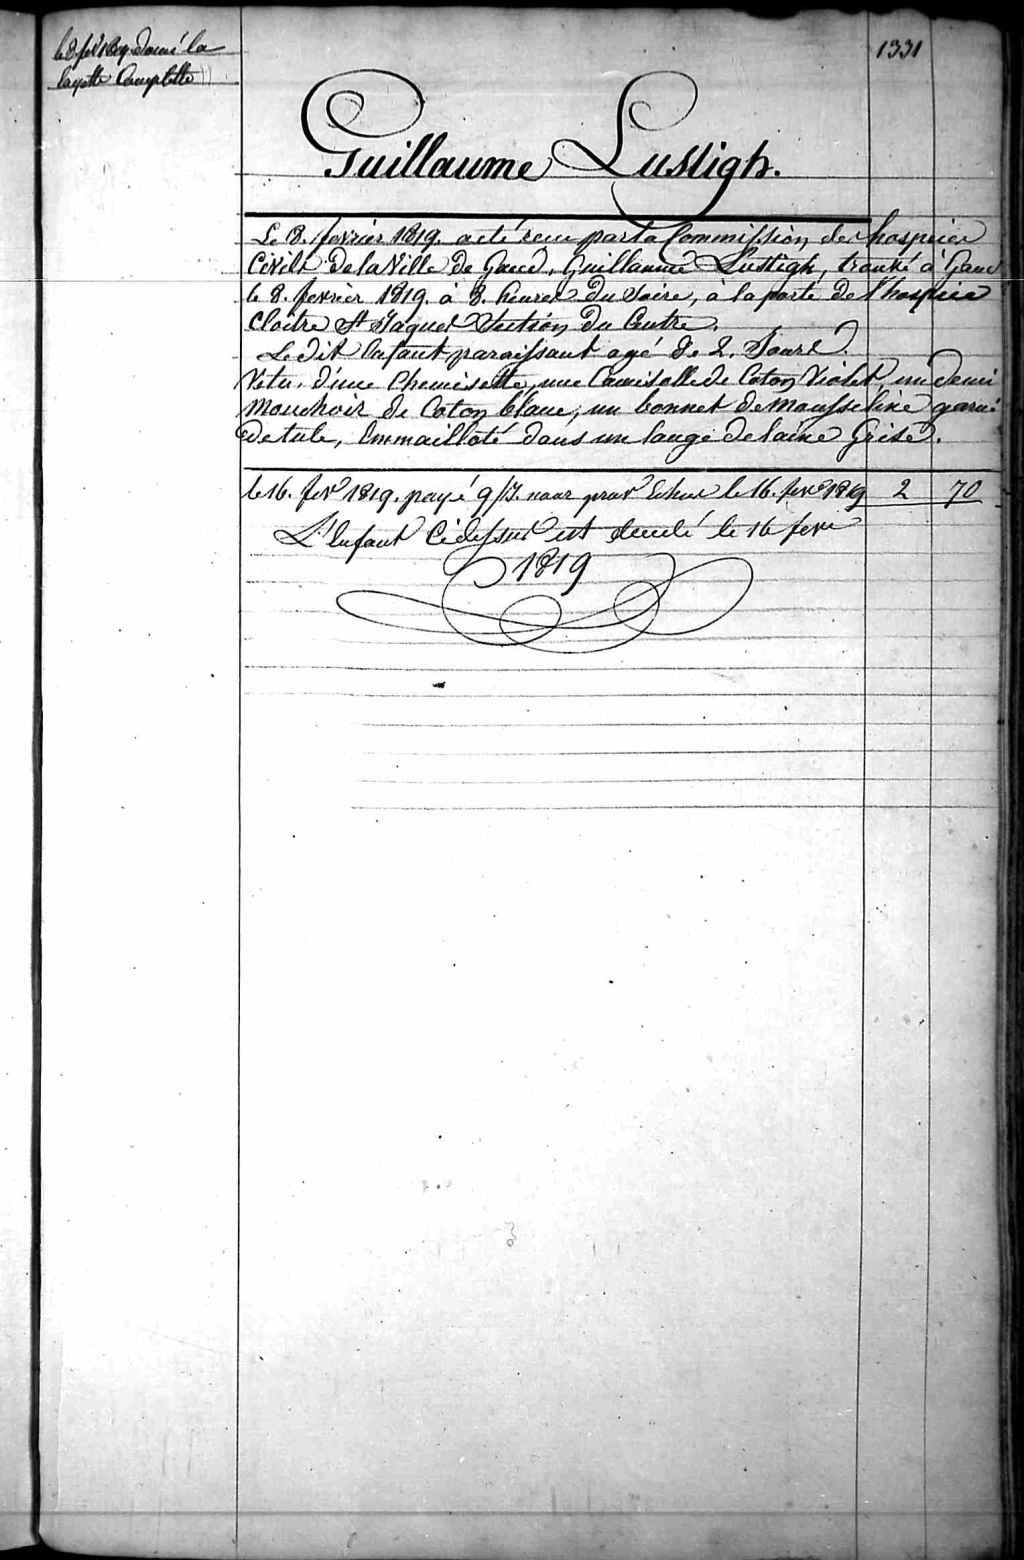 le 8 fevr 1819 donné la
layette Complette
1331
Guillaume Lustigh.
Le 8. fevrier 1819. a eté recu par la Commission des hospices
Civils de la Ville de Gand, Guillaume Lustigh, trouvé à Gand
le 8. fevrier 1819. à 8. heures du Soire, à la porte de l'hospice
Cloitre St Jaques Section du Centre.
Le dit Enfant paraissant agé de 2. Jours.
Vetu. d'une Chemisette, une Camisolle de Coton Violet, un demi
Mouchoir de Coton blanc, un bonnet de Mousseline garni
de tule, Emmailloté dans un lange de laine Grise.
le 16. fevr 1819. payé 9/J. nour. prov. Echus le 16. fevr 1819 2 70
L'Enfant Cidessus est decedé le 16 fevr
1819